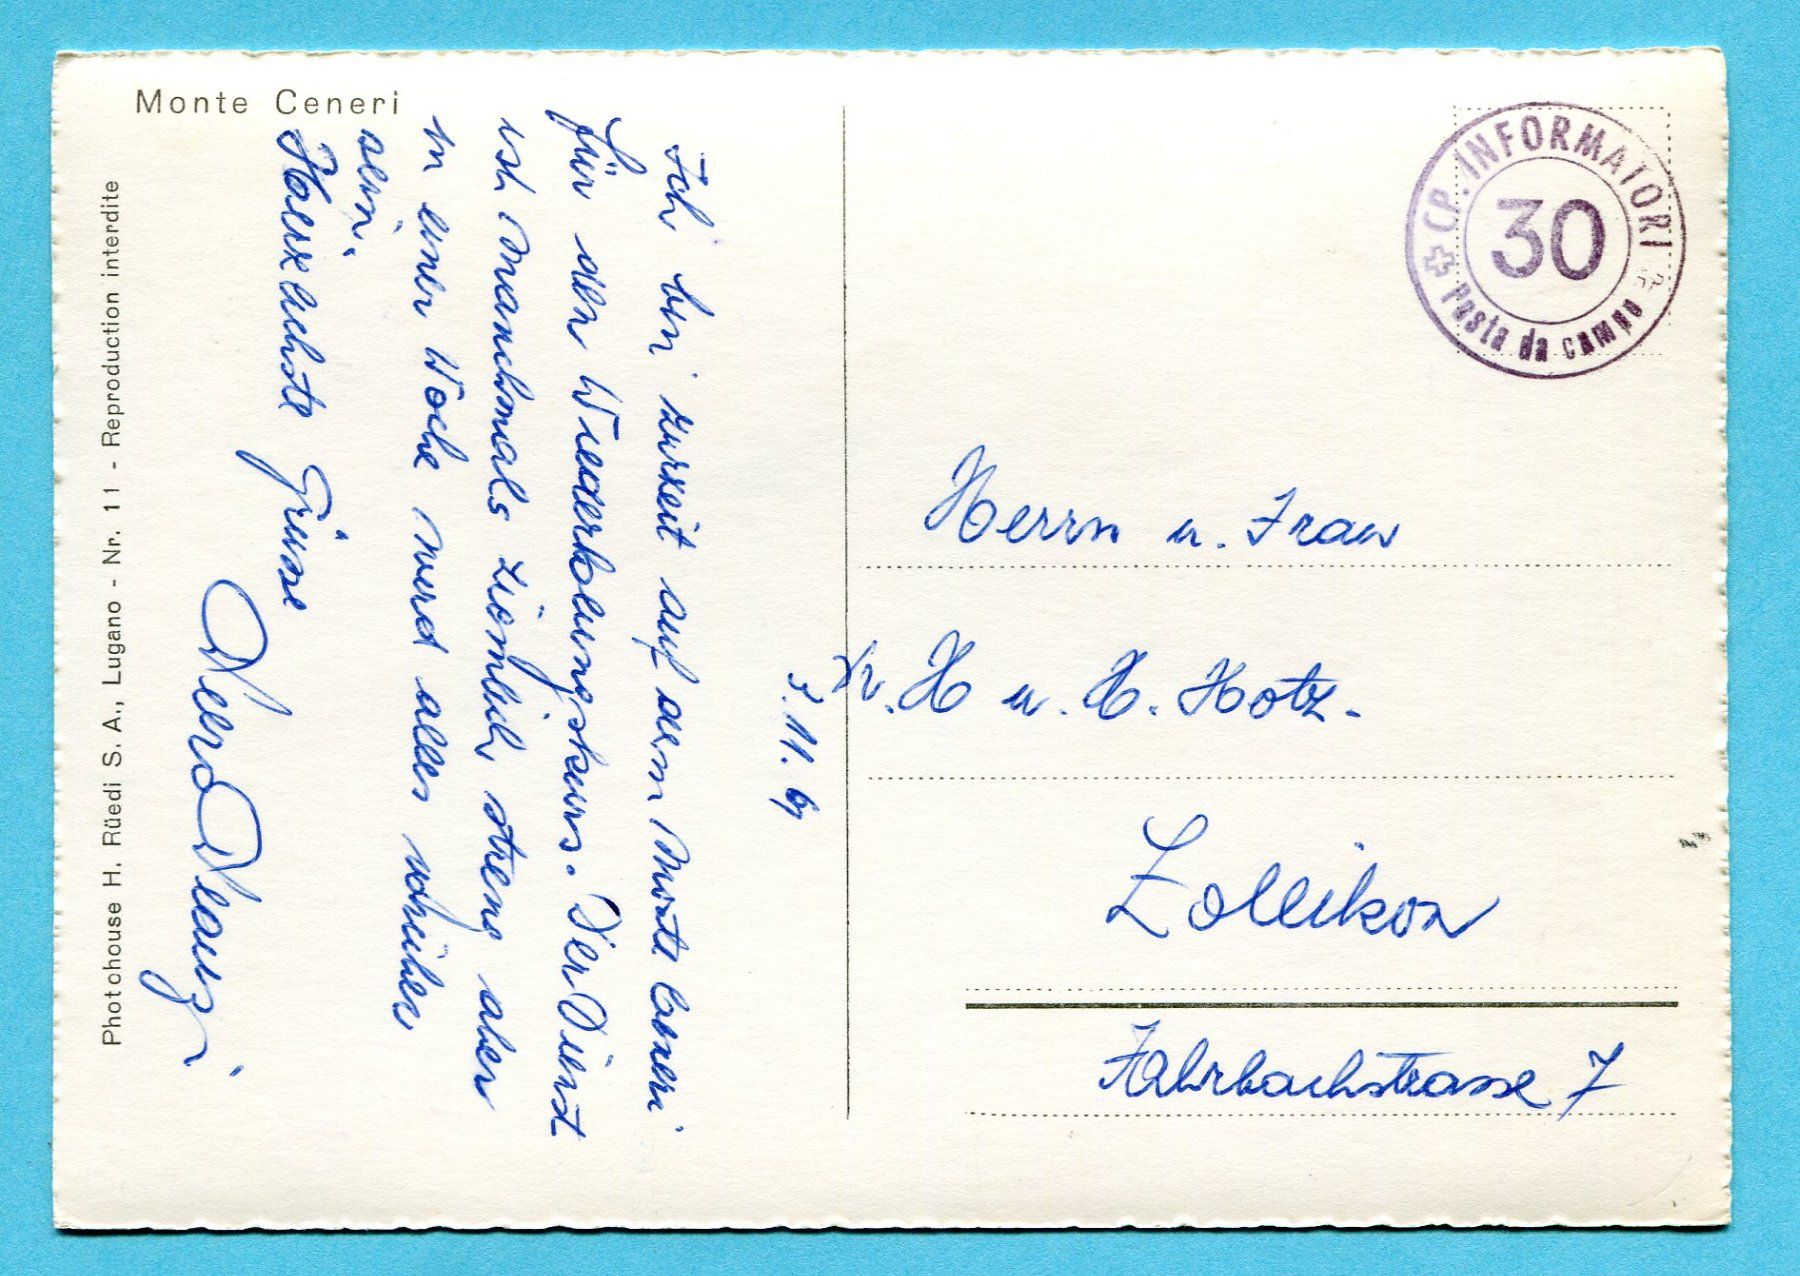 Monte Ceneri
Photohouse H. Rüedi S. A., Lugano - Nr. 11 - Reproduction interdite
3. 11. 61
Ich bin zurzeit auf dem Monte Ceneri
für den Wiederholungskurs. Der Dienst
ist manchmals ziemlich streng aber
in einer Woche wird alles vorüber
sein.
Herzlichste Grüsse
+ CP. INFORMATORI +
30
Posta da campo
Herrn u. Frau
H u. H. Hotz.
Zollikon
Fahrbachstrasse 7